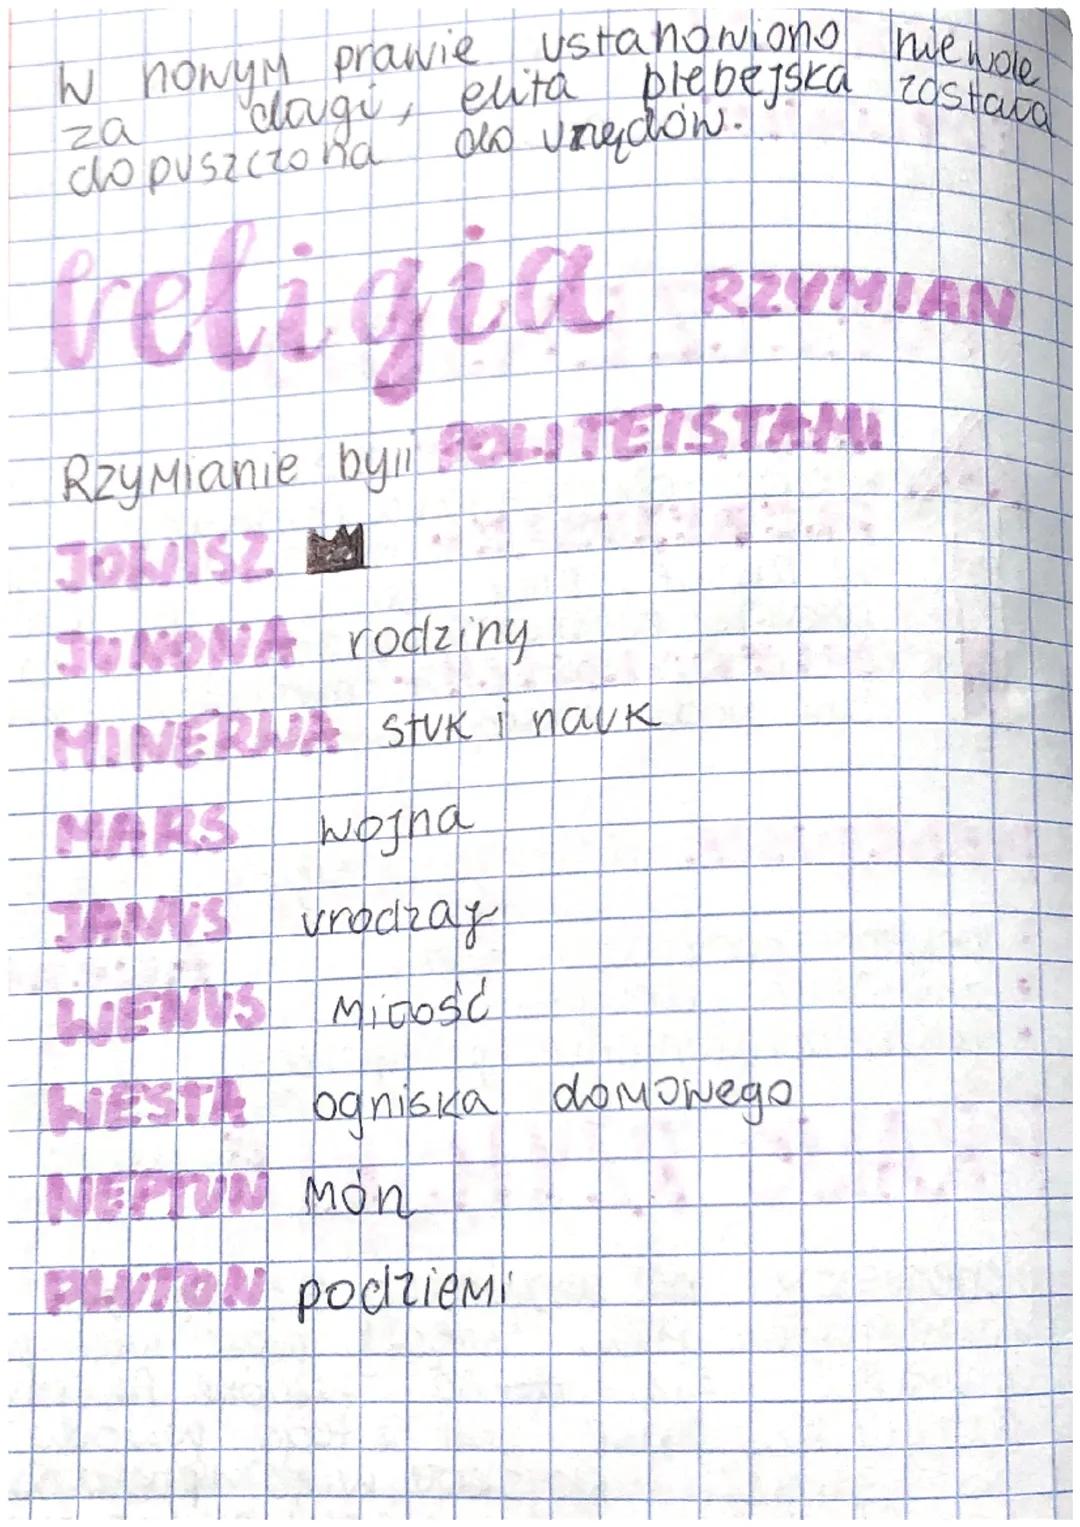 W nowym prawie ustanowiono niewole
za długi, elita plebejska została
dopuszczona do urzędów.
religia RZYMIAN
Rzymianie byli POLITEISTAMI
JOWISZ
JUNONA rodziny
MINERWA sztuk i nauk
MARS wojna
JANUS urodzaj
WENUS Miłość
WESTA ogniska domowego
NEPTUN Mórz
PLUTON podziemi